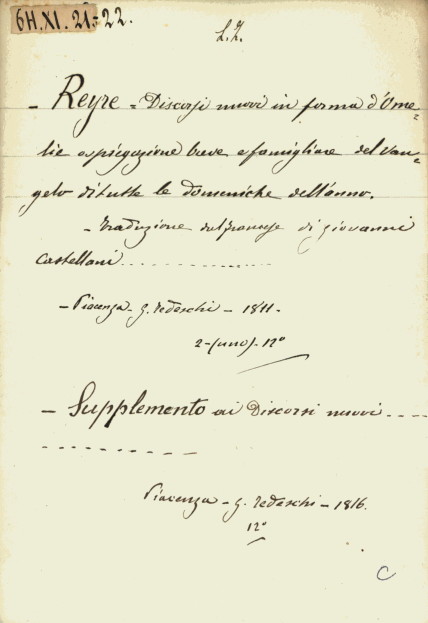 6H.XI.21.-22.
L.Z.
- Reyre - Discorsi nuovi in forma d'Ome-
lie o spiegazione breve e famigliare del Van-
gelo di tutte le domeniche dell'anno.
- traduzione dal francese di giovanni
Castellani.................
- Piacenza - G. Tedeschi - 1811.
2-(uno)- 12º
- Supplemento ai Discorsi nuovi ----
-----------
Piacenza - G. Tedeschi - 1816.
12º
C